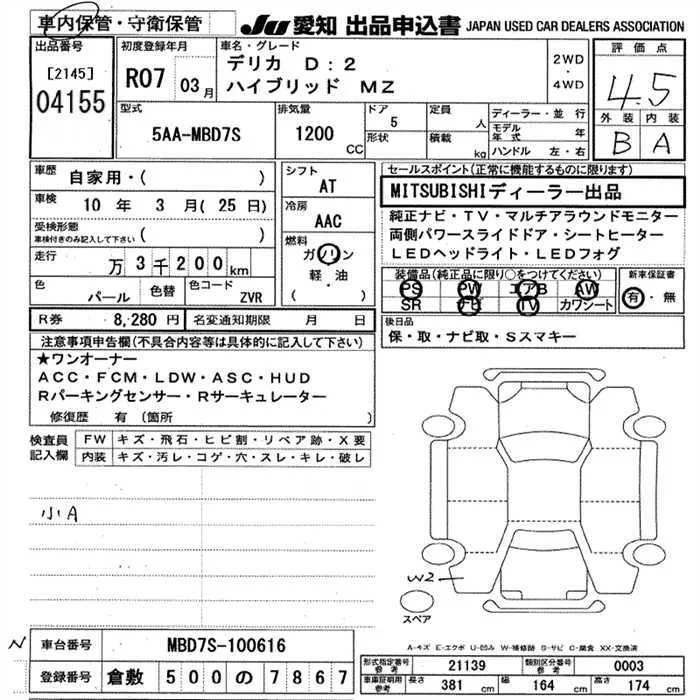 車内保管・守衛保管
JU 愛知 出品申込書 JAPAN USED CAR DEALERS ASSOCIATION
出品番号
[2145]
04155
初度登録年月
R07 03月
車名・グレード
デリカ D:2
ハイブリッド MZ
2WD
・
4WD
評価点
4.5
外装 内装
B A
型式
5AA-MBD7S
排気量
1200 CC
ドア
5
形状
定員
人
積載
kg
ディーラー・並行
モデル年式 年
ハンドル 左・右
車歴
自家用・( )
車検
10 年 3 月( 25 日)
受検形態
車検付きのみ記入して下さい ( )
走行
万 3 千 2 0 0 km
色
パール
色替
色コード
ZVR
シフト
AT
冷房
AAC
燃料
ガソリン
軽・油
( )
セールスポイント(正常に機能するものに限ります)
MITSUBISHIディーラー出品
純正ナビ・TV・マルチアラウンドモニター
両側パワースライドドア・シートヒーター
LEDヘッドライト・LEDフォグ
装備品(純正品に限り○をつけてください)
PS PW エアB AW
SR ナビ TV カワシート
新車保証書
有・無
R券 8,280 円 名変通知期限 月 日
後日品
保・取・ナビ取・Sスマキー
注意事項申告欄(不具合内容等は具体的に記入して下さい)
★ワンオーナー
ACC・FCM・LDW・ASC・HUD
Rパーキングセンサー・Rサーキュレーター
修復歴 有 (箇所 )
検査員
記入欄
FW キズ・飛石・ヒビ割・リペア跡・X要
内装 キズ・汚レ・コゲ・穴・スレ・キレ・破レ
小A
W2
スペア
A-キズ E-エクボ U-凹み W-補修跡 S-サビ C-腐食 XX-交換済
N
車台番号 MBD7S-100616
登録番号 倉敷 500 の 7867
形式指定番号
参考
21139
類別区分番号
参考
0003
車庫証明用
参考
長さ 381 cm 幅 164 cm 高さ 174 cm